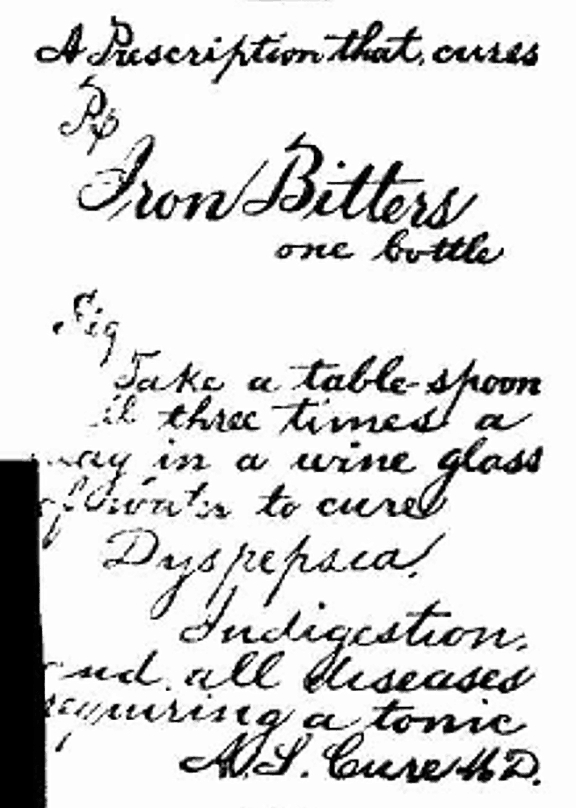 A Prescription that cures
Rx
Iron Bitters
one bottle
Sig
Take a table-spoon
three times a
in a wine glass
of water to cure
Dyspepsia.
Indigestion,
and all diseases
requiring a tonic
M.D.